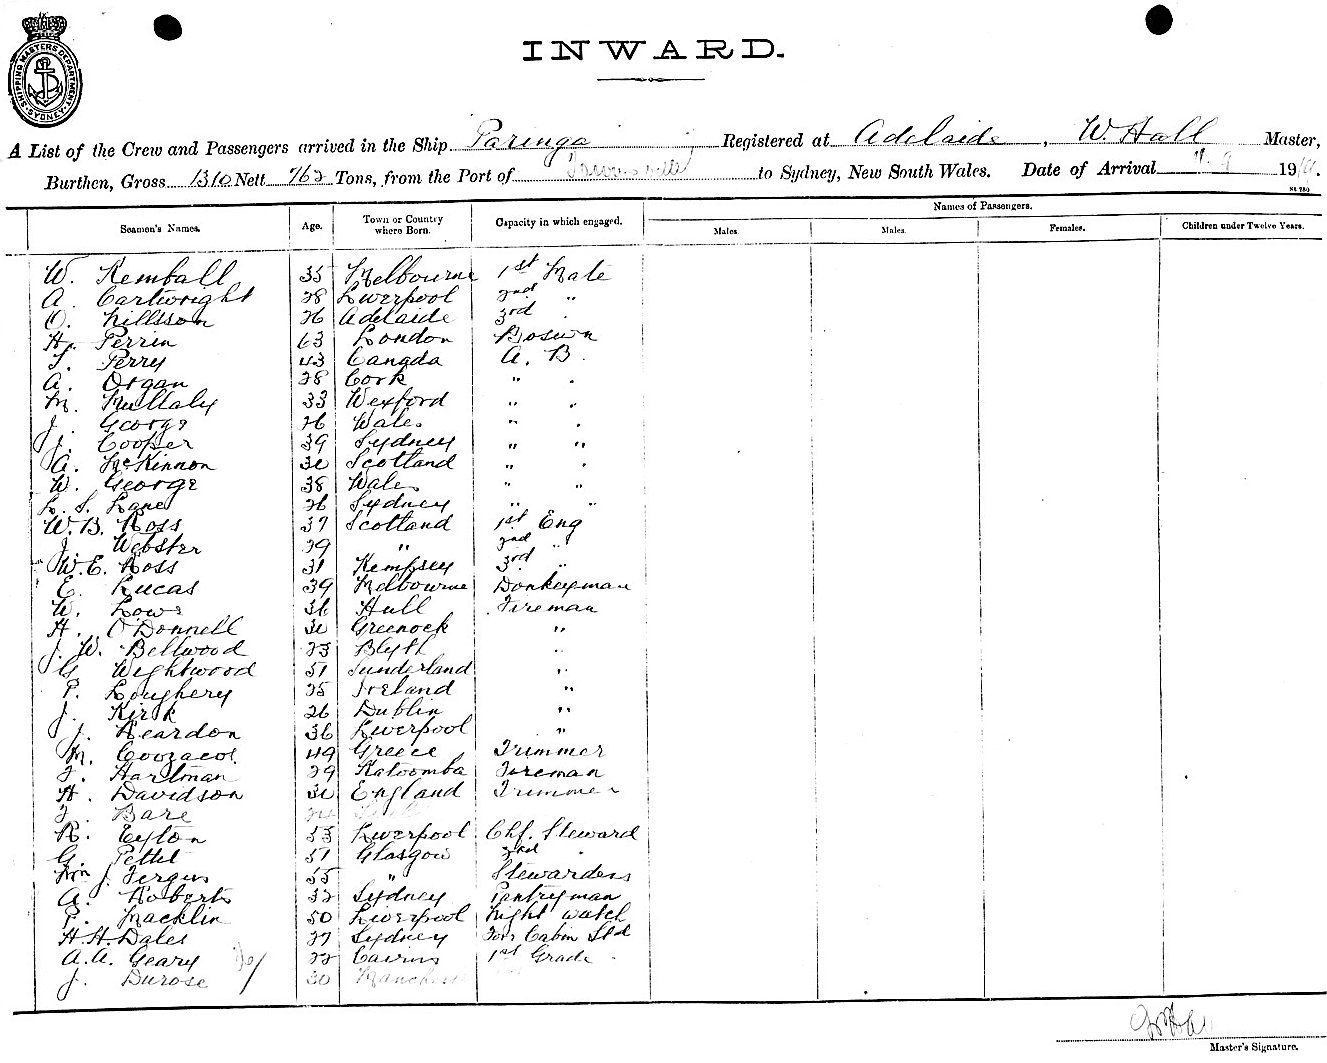 SHIPPING MASTERS DEPARTMENT SYDNEY
INWARD.
A List of the Crew and Passengers arrived in the Ship Paringa Registered at Adelaide, W. Hall Master,
Burthen, Gross 1310 Nett 762 Tons, from the Port of Townsville to Sydney, New South Wales. Date of Arrival 9 19
Names of Passengers.
Seamen's Names. Age. Town or Country where Born. Capacity in which engaged. Males. Males. Females. Children under Twelve Years.
W. Kemball 35 Melbourne 1st Mate
A. Cartwright 28 Liverpool 2nd "
O. Nillsson 26 Adelaide 3rd "
H. Perrin 63 London Bosun
T. Perry 43 Canada A. B.
A. Organ 28 Cork " "
M. Mullaly 33 Wexford " "
J. George 26 Wales " "
J. Cooper 39 Sydney " "
A. McKinnon 30 Scotland " "
W. George 38 Wales " "
L. S. Lane 26 Sydney " "
W. B. Ross 37 Scotland 1st Eng
J. Webster 29 " 2nd "
W. E. Ross 31 Kempsey 3rd "
E. Lucas 39 Melbourne Donkeyman
W. Lowe 36 Hull Fireman
H. O'Donnell 30 Greenock "
J. W. Bellwood 23 Blyth "
G. Wightwood 51 Sunderland "
P. Loughery 25 Ireland "
J. Kirk 26 Dublin "
J. Reardon 36 Liverpool "
M. 49 Greece Trimmer
F. Hartman 29 Katoomba Fireman
H. Davidson 30 England Trimmer
F. Bare 24
R. Eyton 53 Liverpool Chf. Steward
G. Pettet 51 Glasgow 2nd "
Mrs J. Fergus 55 " Stewardess
A. Roberts 32 Sydney Pantryman
P. Macklin 50 Liverpool Night watch
H. H. Dales 27 Sydney For Cabin Std
A. A. Geary 22 Cairns 1st Grade
J. Durose 30
Master's Signature.